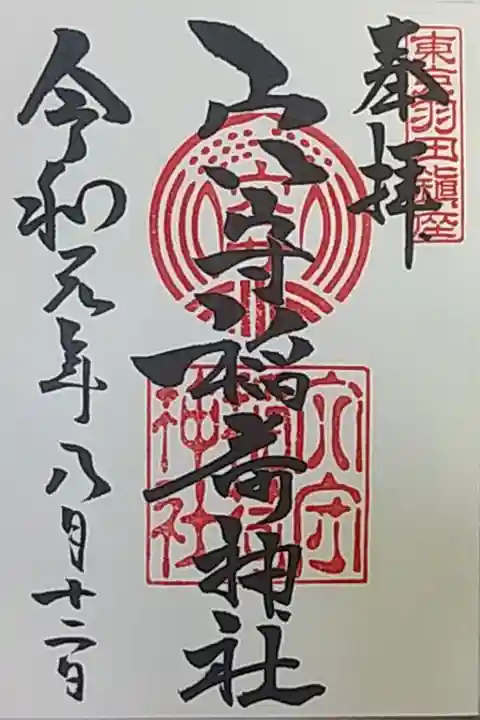 東京羽田鎮座
奉拝
穴守稲荷神社
穴守
稲荷
神社
令和元年八月十二日